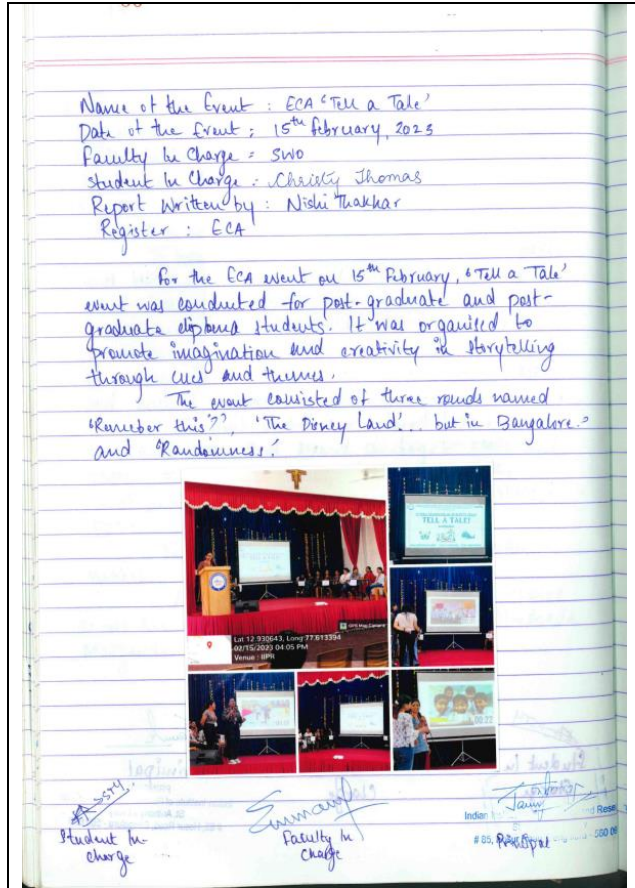 Name of the Event : ECA 'Tell a Tale'
Date of the Event : 15th february, 2023
Faculty In Charge : SWO
Student In Charge : Christy Thomas
Report Written by : Nishi Thakhar
Register : ECA
For the ECA event on 15th February, 'Tell a Tale'
event was conducted for post-graduate and post-
graduate diploma students. It was organised to
promote imagination and creativity in storytelling
through cues and themes.
The event consisted of three rounds named
'Remeber this??', 'The Disney Land'... but in Bangalore.'
and 'Randomness.'
TELL A TALE!
GPS Map Camera
Lat 12.930643, Long 77.613394
02/15/2023 04:05 PM
Venue : IIPR
00:22
Student In-
charge
Faculty In
Charge
Indian
Principal
# 85,